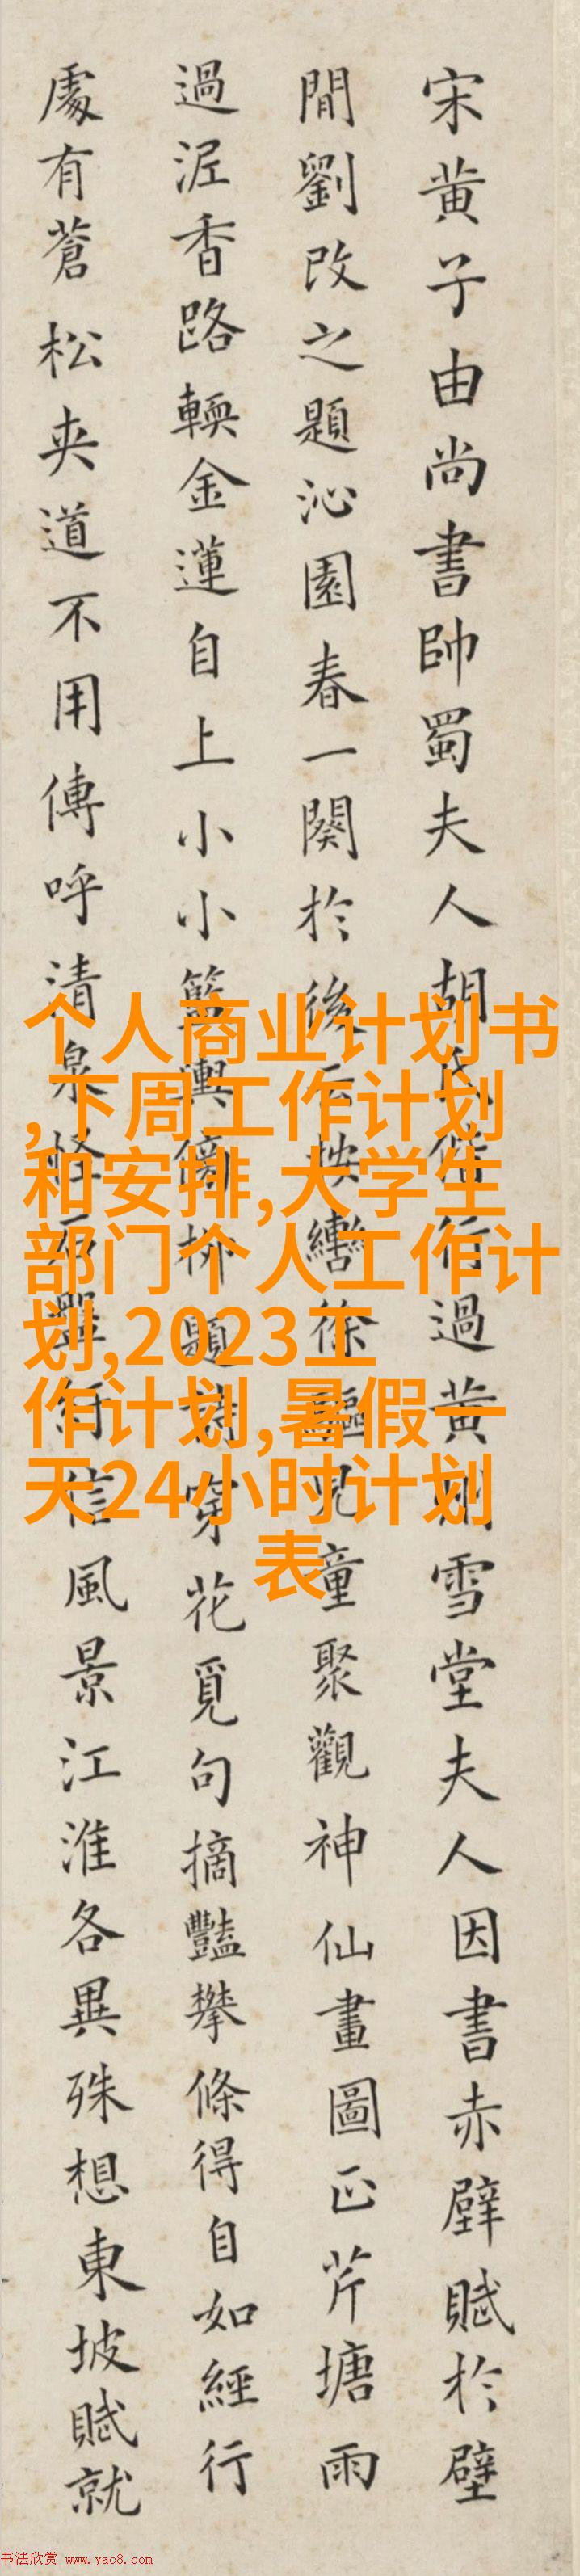 宋黄子由尚書帥蜀夫人胡氏偕行過黄州雪堂夫人因書赤壁賦於壁
間劉改之題沁園春一闋於後云按轡徐驅兒童聚觀神仙畫圖正芹塘雨
過泥香路輭金蓮自上小小籃輿傍柳題詩穿花覓句摘豔攀條得自如經行
處有蒼松夾道不用傳呼清泉怪石盤紆信風景江淮各異殊想東坡賦就
个人商业计划书
,下周工作计划
和安排,大学生
部门个人工作计
划,2023工
作计划,暑假一
天24小时计划
表
书法欣赏 www.yac8.com